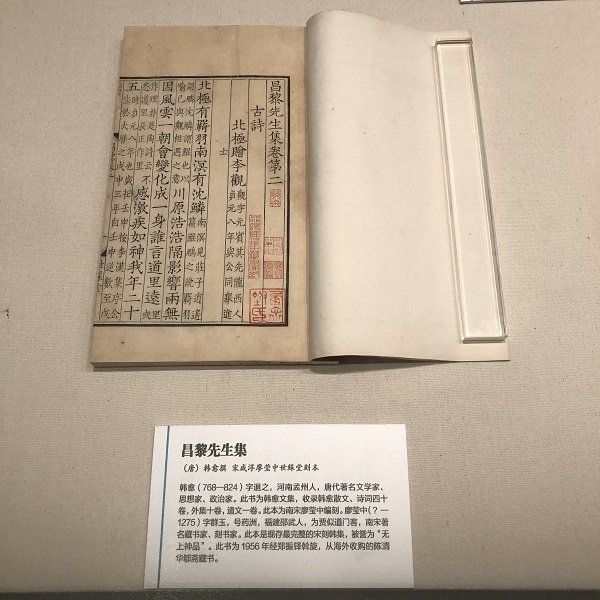 昌黎先生集卷第二
古詩
北極贈李觀
觀字元賓其先隴西人
貞元八年與公同舉進
士
北極有羇羽南溟有沈鱗
南溟見莊子逍遙
川原浩浩隔影響兩無
因風雲一朝會變化成一身誰言道里遠
感激疾如神我年二十
五
昌黎先生集
（唐）韩愈撰 宋咸淳廖莹中世綵堂刻本
韩愈（768—824）字退之，河南孟州人，唐代著名文学家、
思想家、政治家。此书为韩愈文集，收录韩愈散文、诗词四十
卷，外集十卷，遗文一卷。此本为南宋廖莹中编刻。廖莹中（？—
1275）字群玉，号药洲，福建邵武人，为贾似道门客，南宋著
名藏书家、刻书家。此本是现存最完整的宋刻韩集，被誉为“无
上神品”。此书为 1956 年经郑振铎斡旋，从海外收购的陈清
华郇斋藏书。